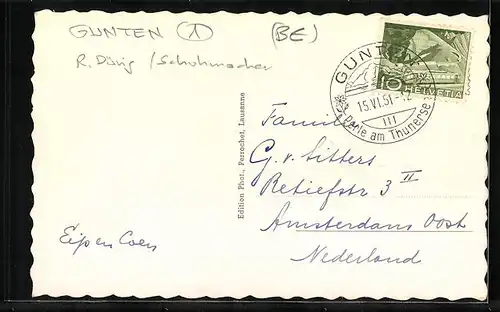 GUNTEN 1 (BE)
R. Dürig / Schuhmacher
10 HELVETIA
GUNTEN
15.VI.51-12
III
Perle am Thunersee
Familie
G. v. Sitters
Retiefstr 3 II
Amsterdam Oost
Nederland
Edition Phot., Perrochet, Lausanne